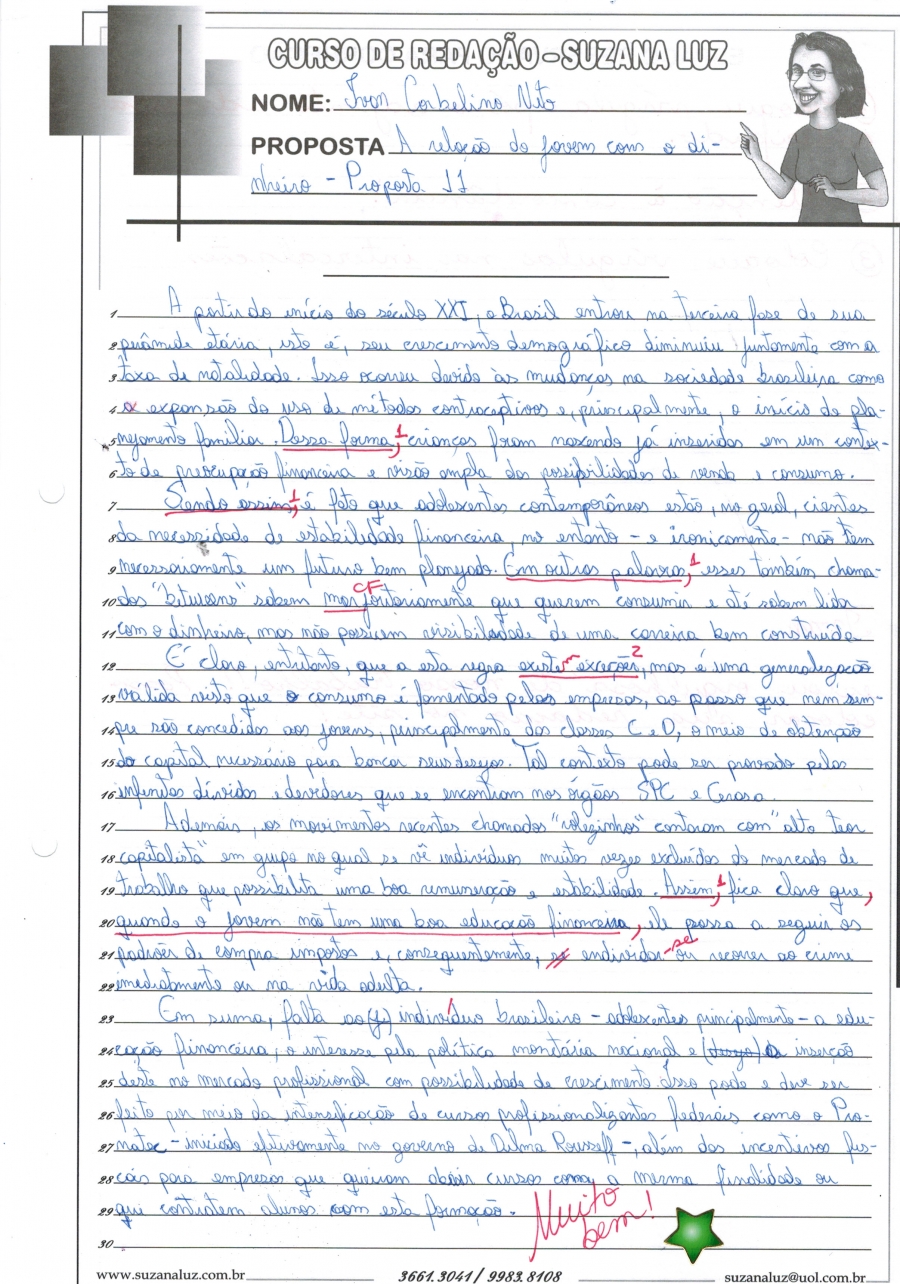 CURSO DE REDAÇÃO - SUZANA LUZ
NOME: Ivan Corbelino Neto
PROPOSTA A relação do jovem com o di-
nheiro - Proposta 11
1 A partir do início do século XXI, o Brasil entrou na terceira fase de sua
2 pirâmide etária, isto é, seu crescimento demográfico diminuiu juntamente com a
3 taxa de natalidade. Isso ocorreu devido às mudanças na sociedade brasileira como
4 a expansão do uso de métodos contraceptivos e, principalmente, o início do pla-
5 nejamento familiar. Dessa forma, 1 crianças foram nascendo já inseridas em um contex-
6 to de preocupação financeira e visão ampla das possibilidades de venda e consumo.
7 Sendo assim, 1 é fato que adolescentes contemporâneos estão, no geral, cientes
8 da necessidade de estabilidade financeira, no entanto - e ironicamente - não tem
9 necessariamente um futuro bem planejado. Em outras palavras, 1 esses também chama-
CF
10 dos "bituruns" sabem majoritariamente que querem consumir e até sabem lidar
11 com o dinheiro, mas não possuem visibilidade de uma carreira bem construída
12 É claro, entretanto, que a esta regra existem exceções, 2 mas é uma generalização
13 válida visto que o consumo é fomentado pelas empresas, ao passo que nem sem-
14 pre são concedidos aos jovens, principalmente das classes C e D, o meio de obtenção
15 do capital necessário para bancar seus desejos. Tal contexto pode ser provado pelas
16 infinitas dívidas e devedores que se encontram nos órgãos SPC e Cerasa.
17 Ademais, os movimentos recentes chamados "rolezinhos" contaram com "alto teor
18 capitalista" em grupo no qual se vê indivíduos muitas vezes excluídos do mercado de
19 trabalho que possibilita uma boa remuneração e estabilidade. Assim, 1 fica claro que,
20 quando o jovem não tem uma boa educação financeira, ele passa a seguir os
21 padrões de compra impostos e, consequentemente, se endividar-se ou recorrer ao crime
22 imediatamente ou na vida adulta.
23 Em suma, falta ao indivíduo brasileiro - adolescentes principalmente - a edu-
24 cação financeira, o interesse pela política monetária nacional e a inserção
25 deste no mercado profissional com possibilidade de crescimento. Isso pode e deve ser
26 feito por meio da intensificação de cursos profissionalizantes federais como o Pro-
27 natec - iniciado efetivamente no governo de Dilma Rousseff -, além dos incentivos fis-
28 cais para empresas que queiram abrir cursos com a mesma finalidade ou
29 que contratem alunos com esta formação.
Muito
bem!
30
www.suzanaluz.com.br 3661.3041 / 9983.8108 suzanaluz@uol.com.br